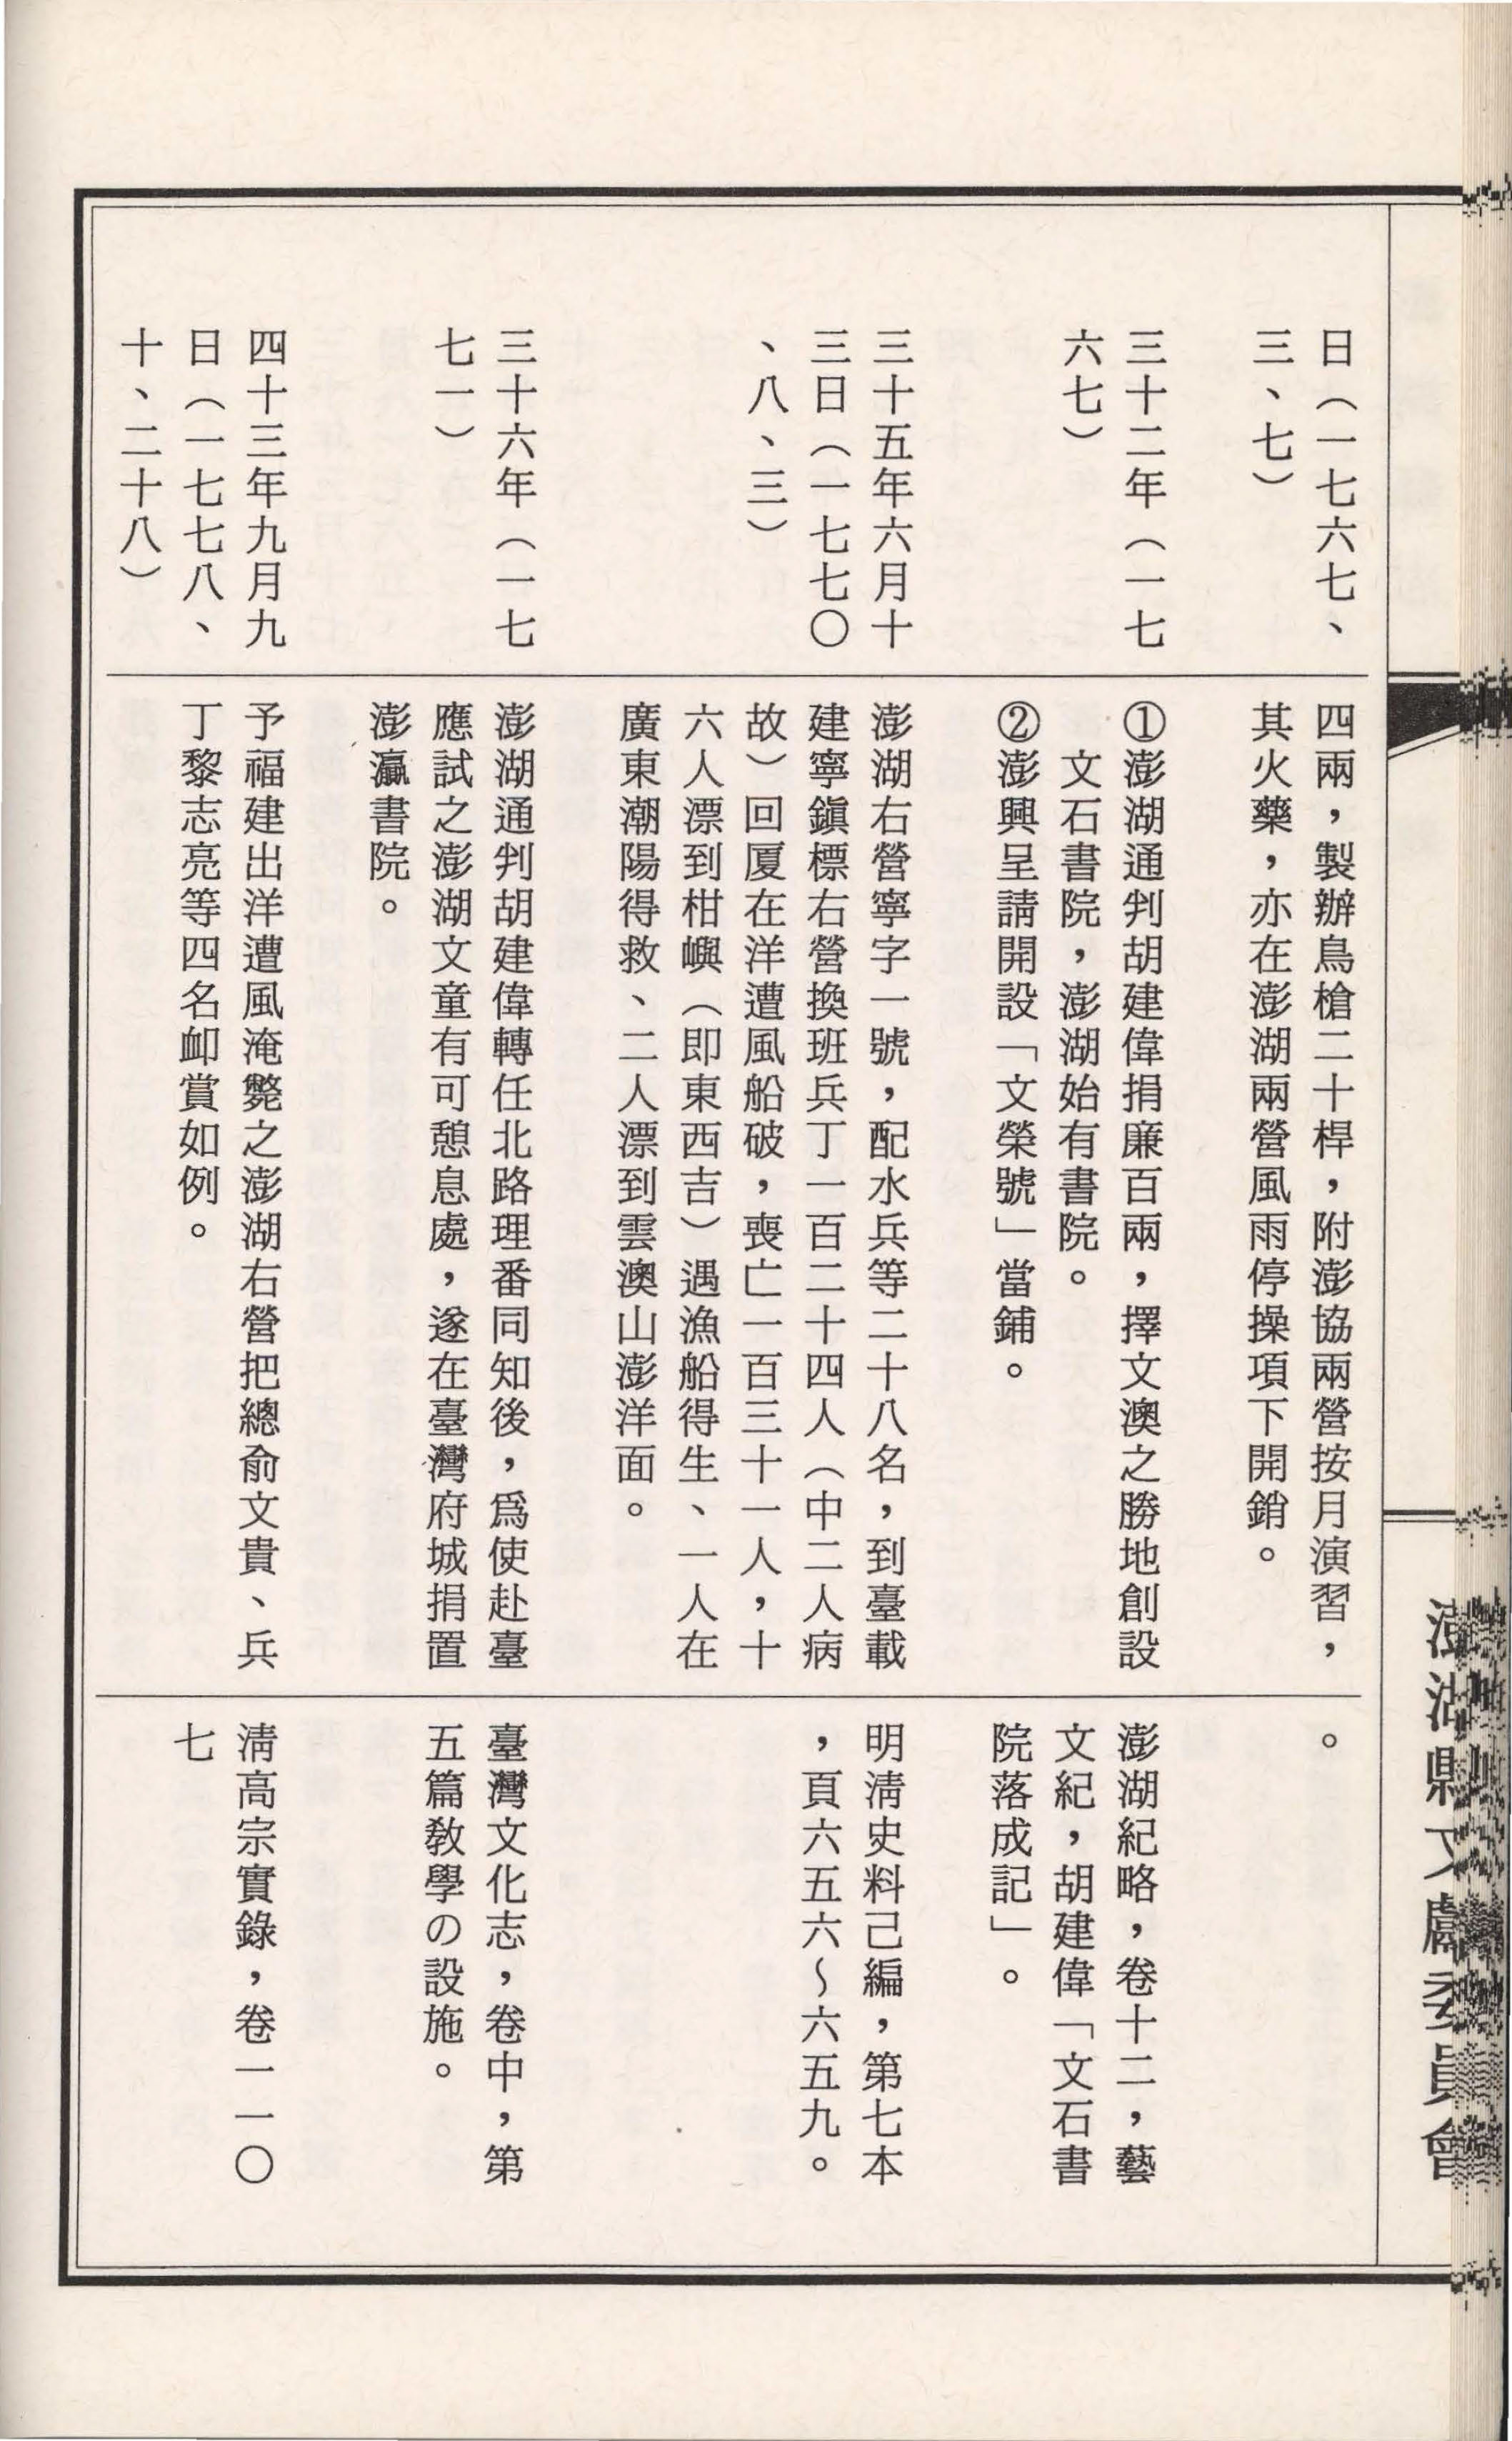 澎湖縣文獻委員會
日（一七六七、
三、七）
四兩，製辦鳥槍二十桿，附澎協兩營按月演習，
其火藥，亦在澎湖兩營風雨停操項下開銷。
。
三十二年（一七
六七）
①澎湖通判胡建偉捐廉百兩，擇文澳之勝地創設
文石書院，澎湖始有書院。
②澎興呈請開設「文榮號」當鋪。
澎湖紀略，卷十二，藝
文紀，胡建偉「文石書
院落成記」。
三十五年六月十
三日（一七七〇
、八、三）
澎湖右營寧字一號，配水兵等二十八名，到臺載
建寧鎮標右營換班兵丁一百二十四人（中二人病
故）回厦在洋遭風船破，喪亡一百三十一人，十
六人漂到柑嶼（即東西吉）遇漁船得生、一人在
廣東潮陽得救、二人漂到雲澳山澎洋面。
明淸史料己編，第七本
，頁六五六～六五九。
三十六年（一七
七一）
澎湖通判胡建偉轉任北路理番同知後，爲使赴臺
應試之澎湖文童有可憩息處，遂在臺灣府城捐置
澎瀛書院。
臺灣文化志，卷中，第
五篇敎學の設施。
四十三年九月九
日（一七七八、
十、二十八）
予福建出洋遭風淹斃之澎湖右營把總俞文貴、兵
丁黎志亮等四名卹賞如例。
淸高宗實錄，卷一一〇
七